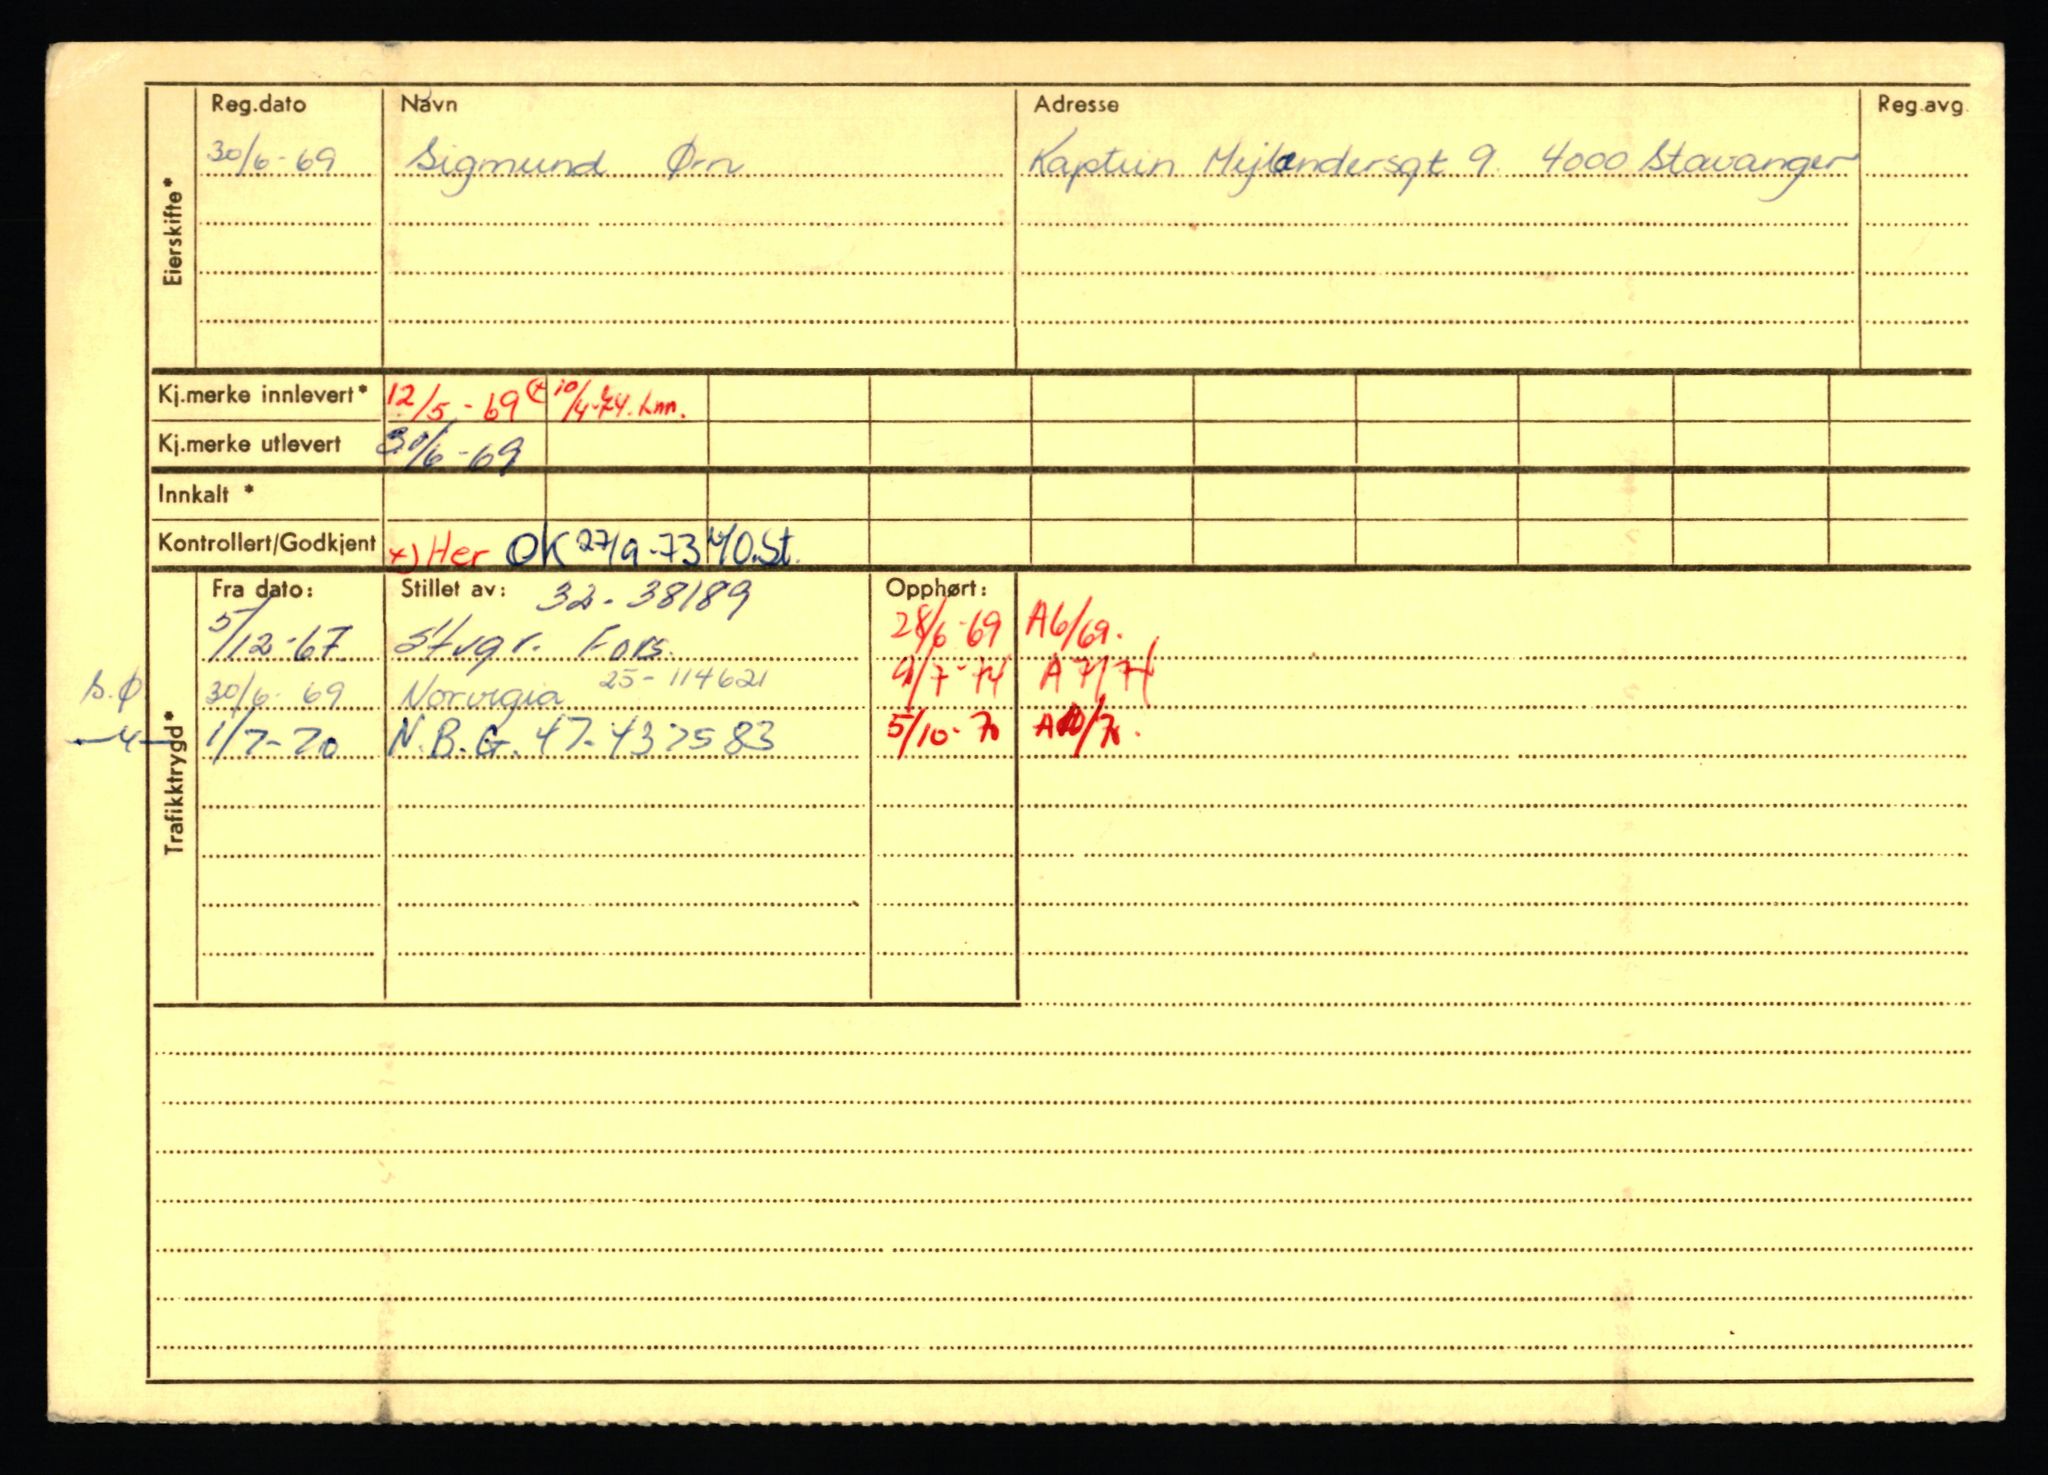 Reg.dato Navn Adresse Reg.avg.
Eierskifte*
30/6-69 Sigmund Ørn Kaptein Mejlændersgt 9. 4000 Stavanger
Kj.merke innlevert* 12/5-69 (x 10/4-74. Inn.
Kj.merke utlevert 30/6-69
Innkalt *
Kontrollert/Godkjent x) Her OK 27/9-73 O.St.
Trafikktrygd*
Fra dato: Stillet av: 32-38189 Opphørt:
5/12-67 Stvgr. Fors. 28/6-69 A6/69.
S.Ø 30/6-69 Norvegia 25-114621 9/7-74 A 7/74
—"— 1/7-70 N.B.G. 47-437583 5/10-70